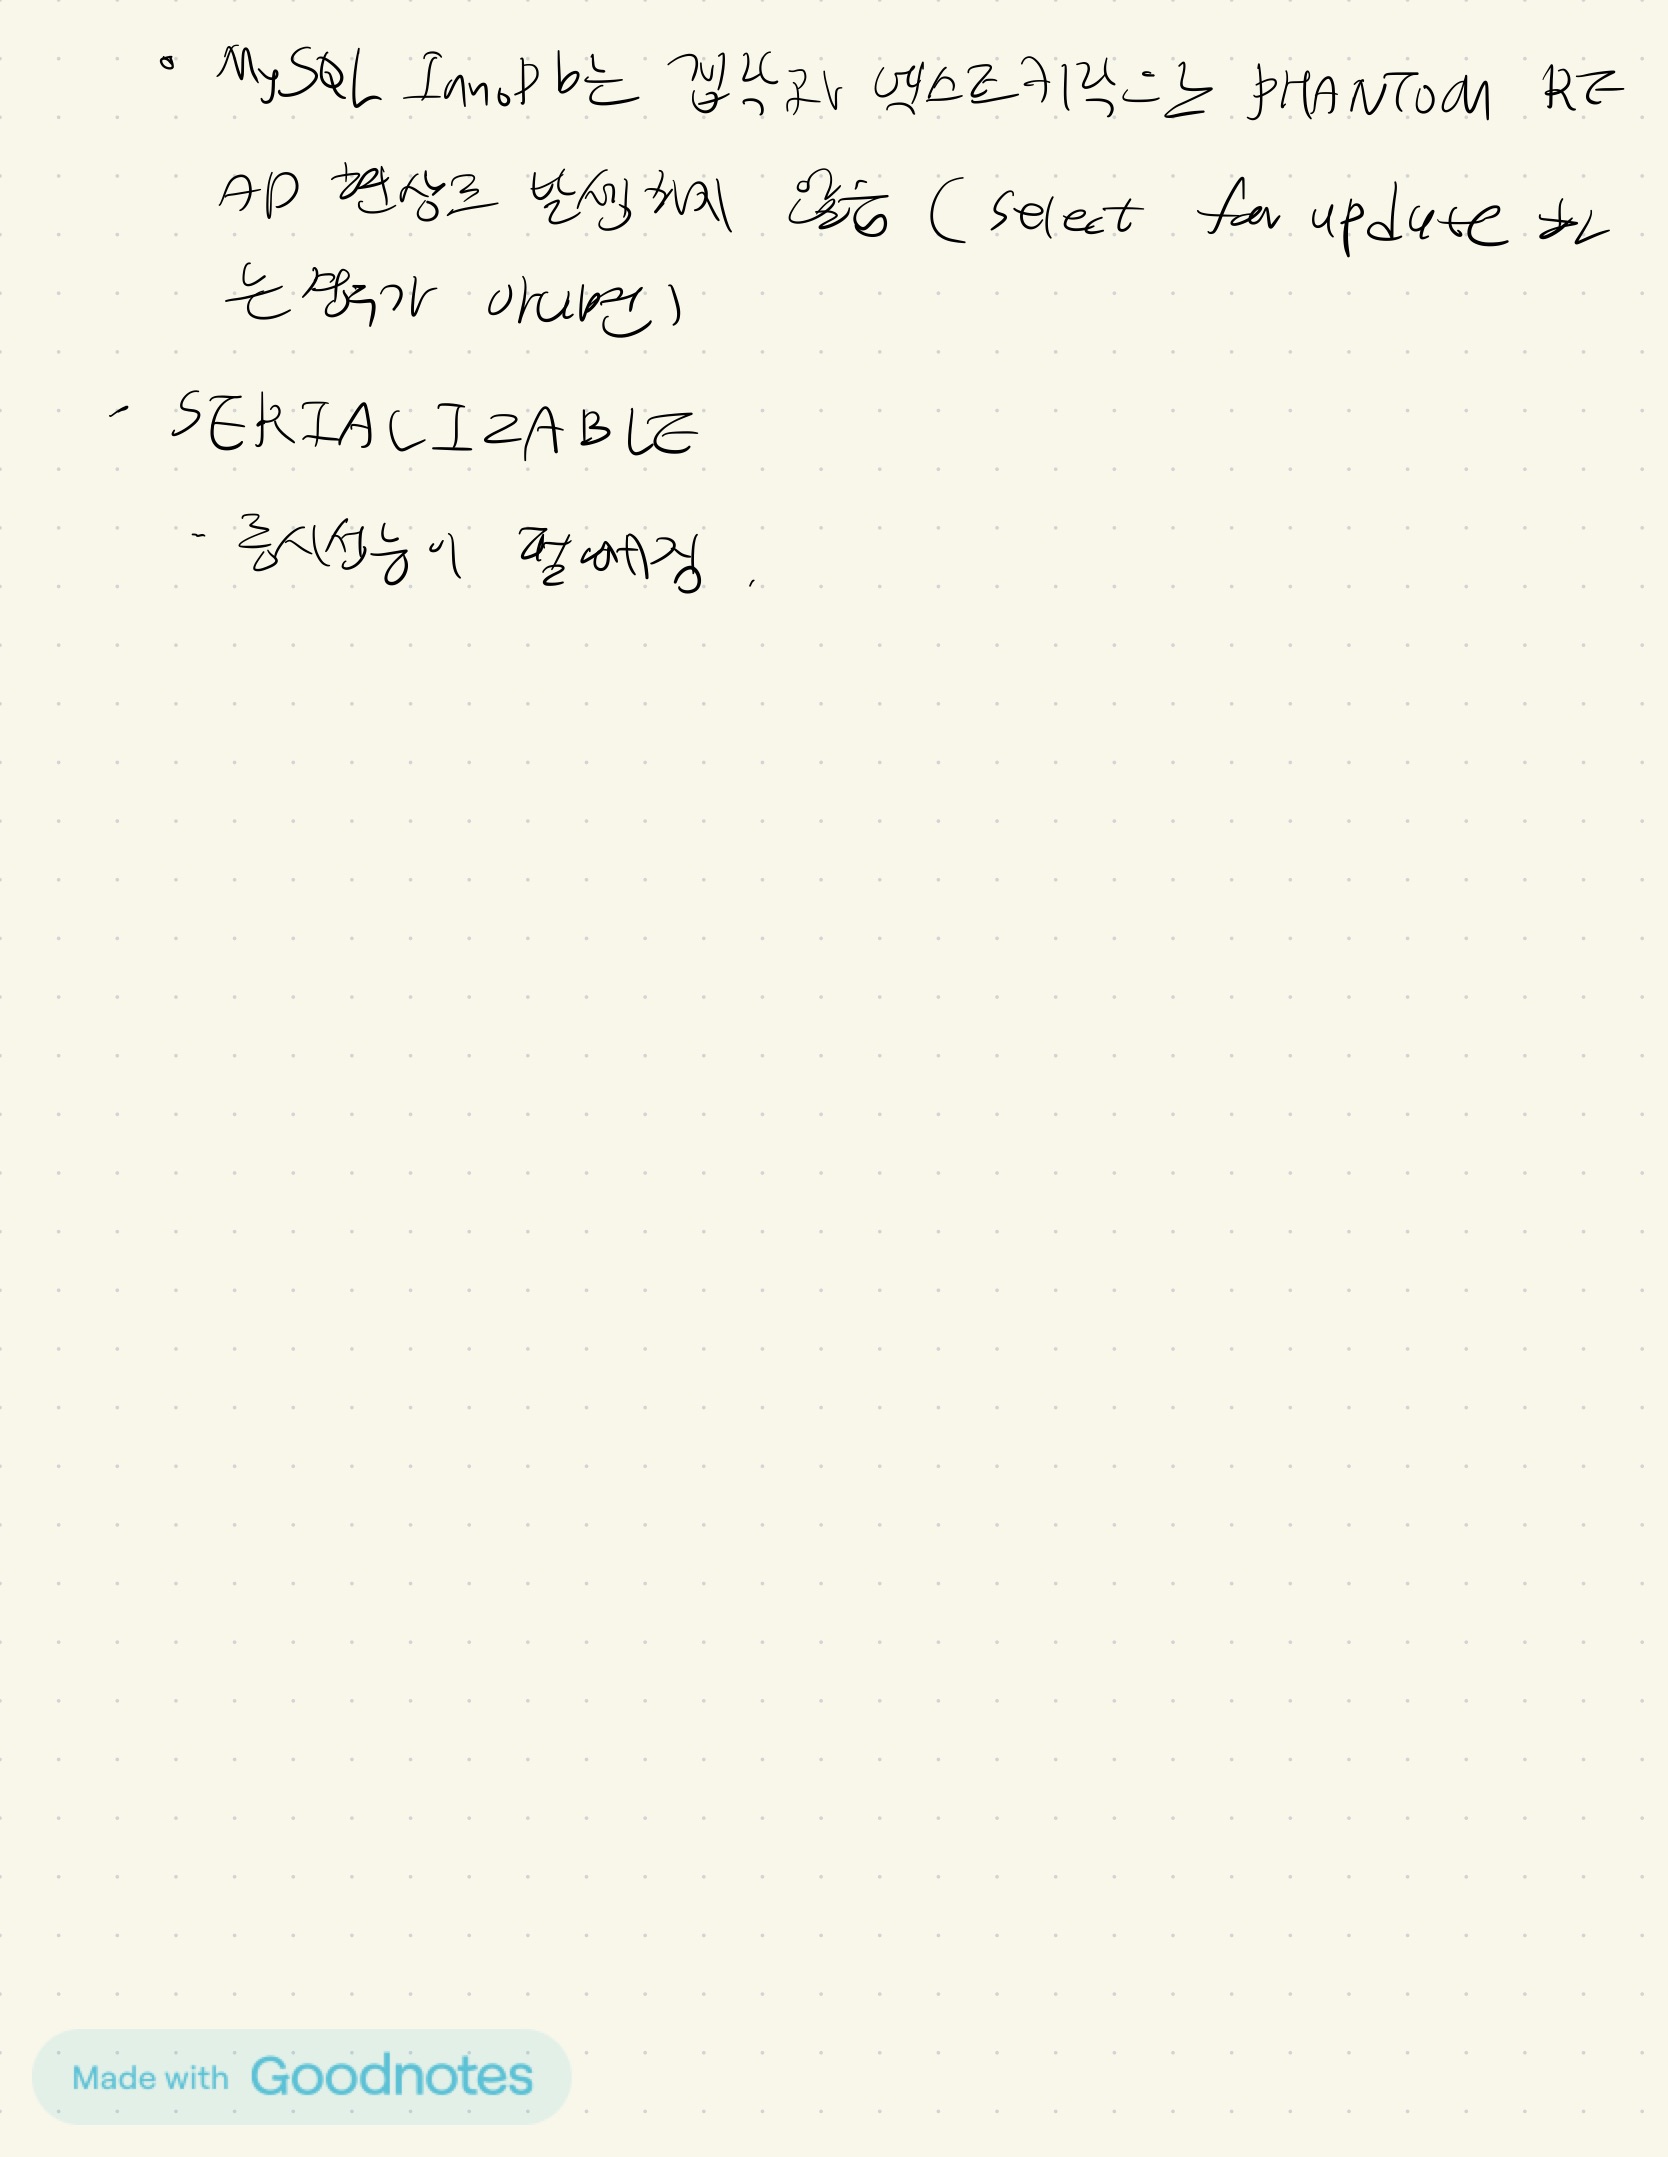 • MySQL InnoDb는 갭락과 넥스트키락으로 PHANTOM RE
AD 현상도 발생하지 않음 ( select for update 하
는 경우가 아니면)
- SERIALIZABLE
- 동시성능이 떨어짐.
Made with Goodnotes